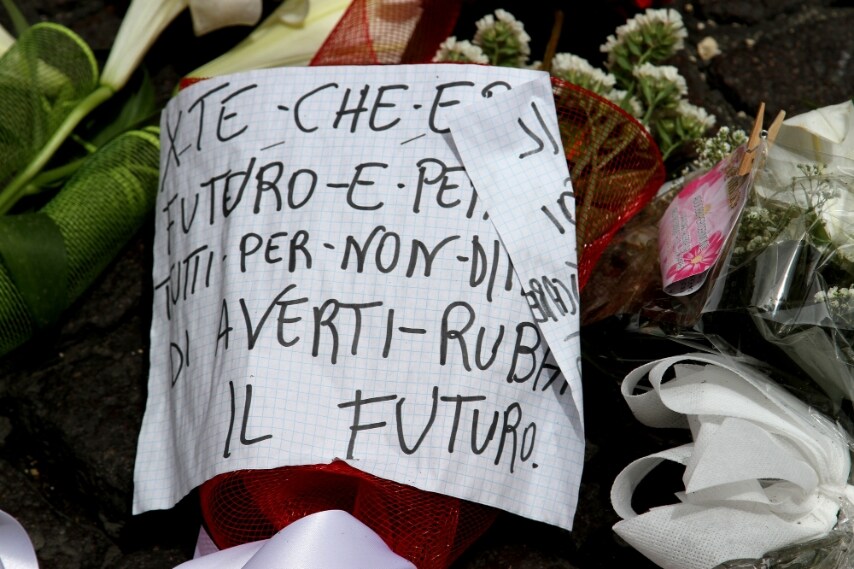 X-TE-CHE
FUTURO-E-PER
TUTTI-PER-NON
DI AVERTI-RUBA
IL FUTURO.